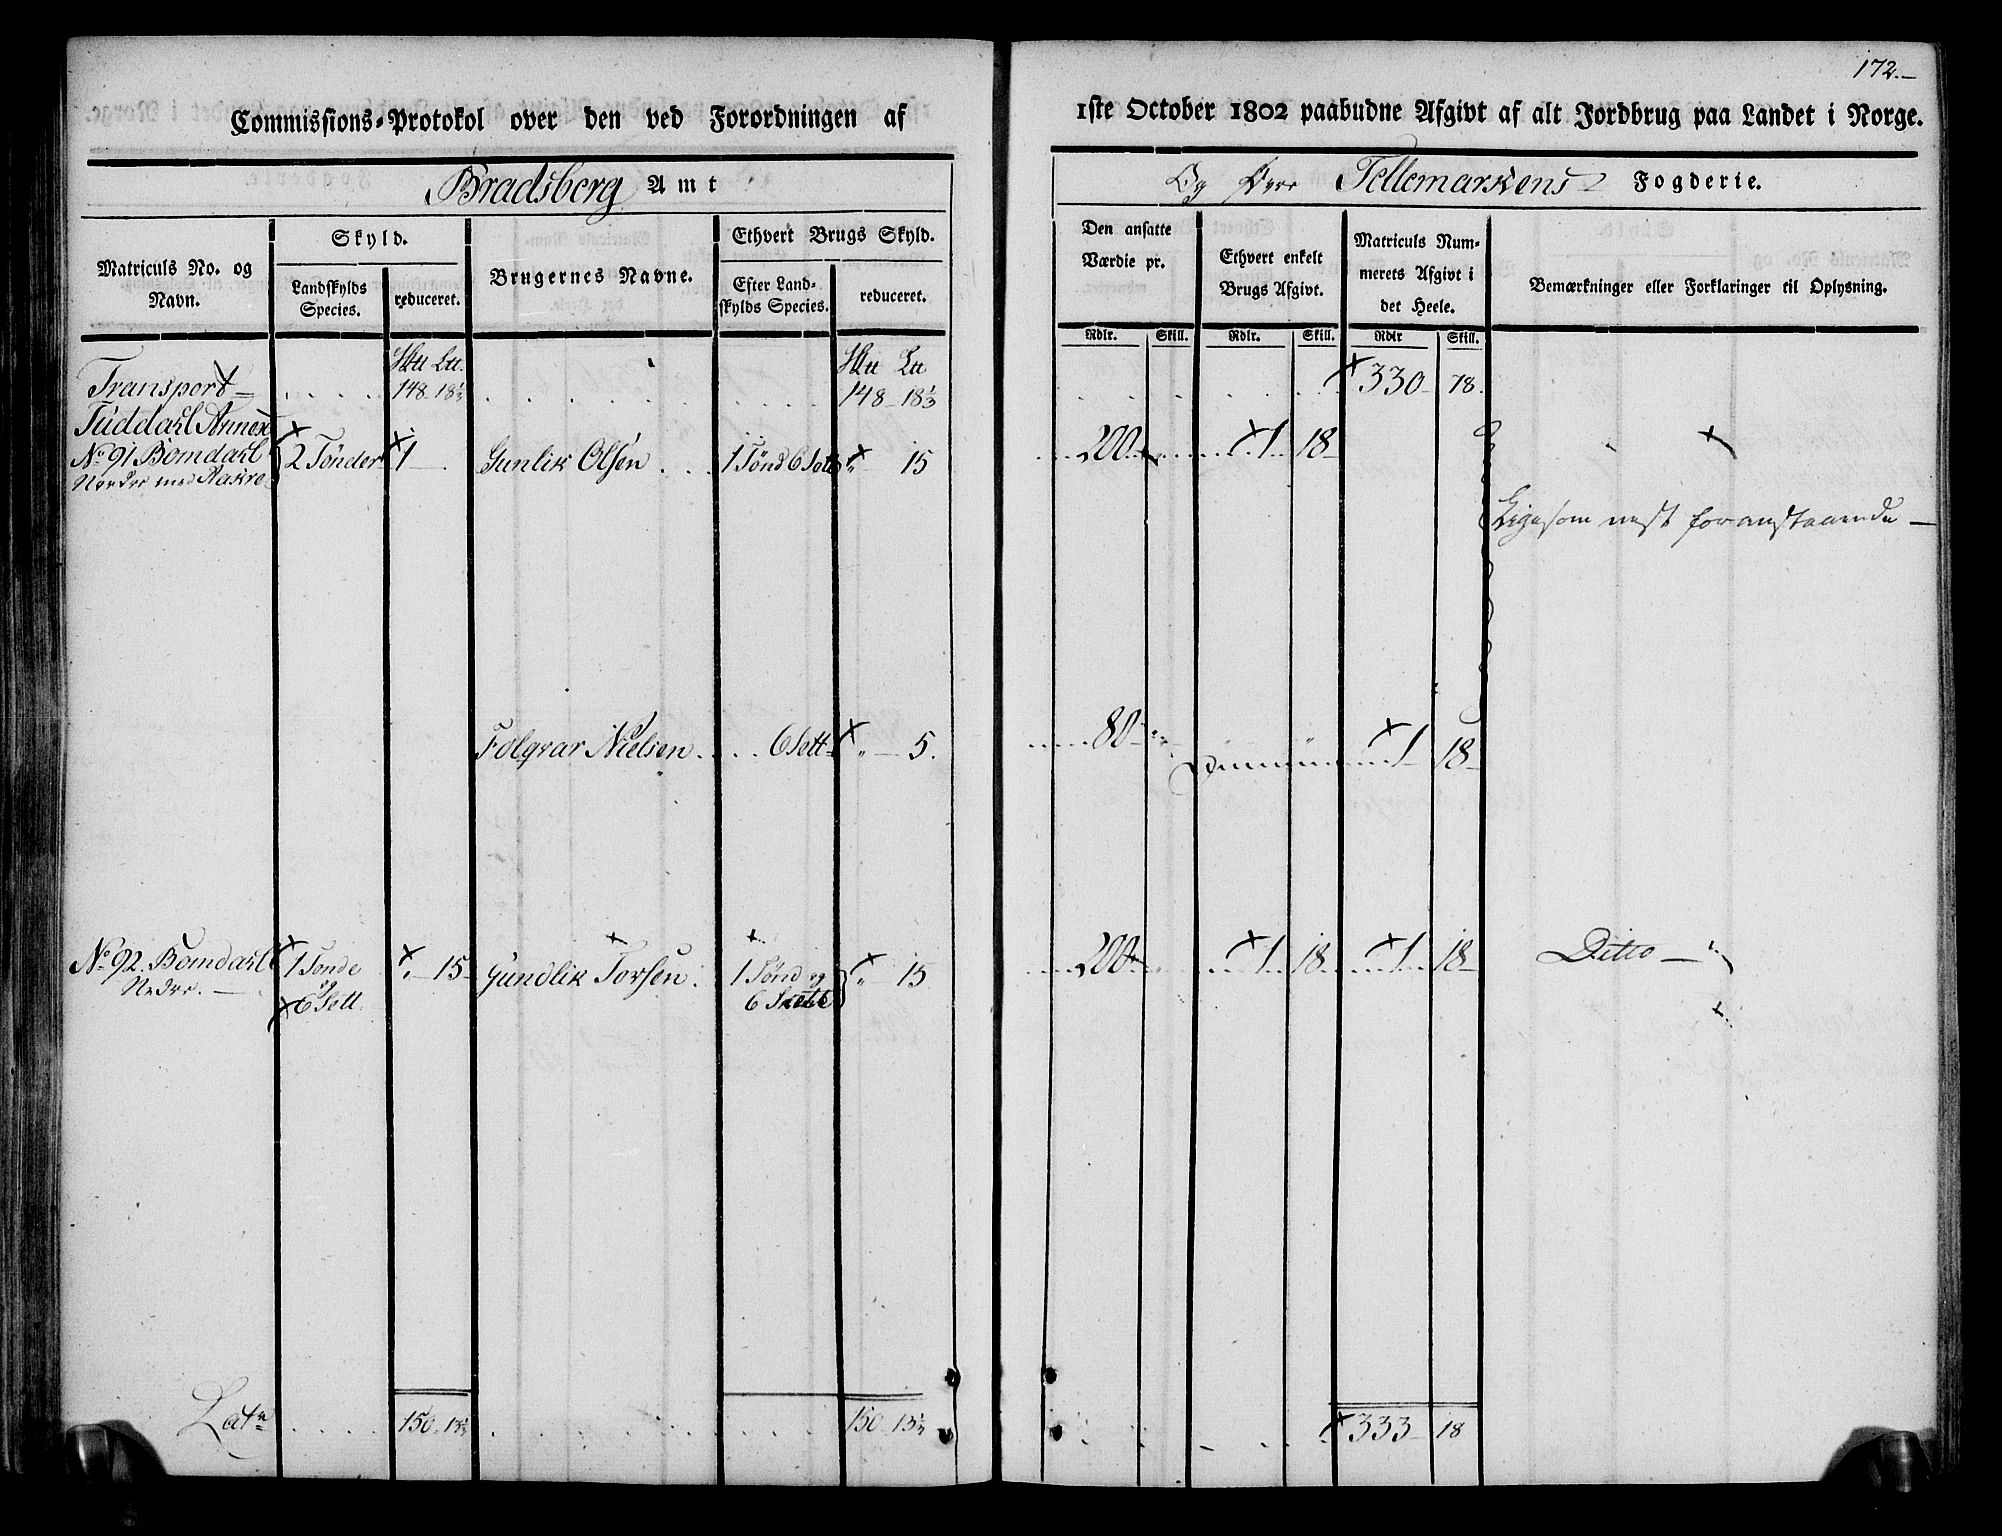 172.
Commissions-Protokol over den ved Forordningen af
1ste October 1802 paabudne Afgivt af alt Jordbrug paa Landet i Norge.
Bradsberg Amt
Og Øvre Tellemarkens Fogderie.
Matriculs No. og Navn.
Skyld.
Landskylds Species.
reduceret.
Brugernes Navne.
Ethvert Brugs Skyld.
Efter Landskylds Species.
reduceret.
Den ansatte Værdie pr.
Rdlr. Skill.
Ethvert enkelt Brugs Afgivt.
Rdlr. Skill.
Matriculs Nummerets Afgivt i det Heele.
Rdlr Skill.
Bemærkninger eller Forklaringer til Oplysning.
Hu Lu. Hu Lu
Transport 148 - 18⅓ 148 - 18⅓ 330 - 78.
Tuddahl Annex
No 91 Bomdahl 2 Tønder 1 - Gunlik Olsen 1 Tønd 6 Sett " - 15 200 - 1 18
Nerdre med Aakre
Ligesom nest foranstaaende —
Folqvar Nielsen 6 Sett " - 5. 80 - 1 18
No 92. Bomdahl 1 Tønde " - 15 - Gundlik Torsen. 1 Tønd og " - 15 200 1 18 1 18 Ditto —
Nedre. — og 6 Sett. 6 Skett
Late 150 - 13⅓ 150 - 13⅓ 333 - 18